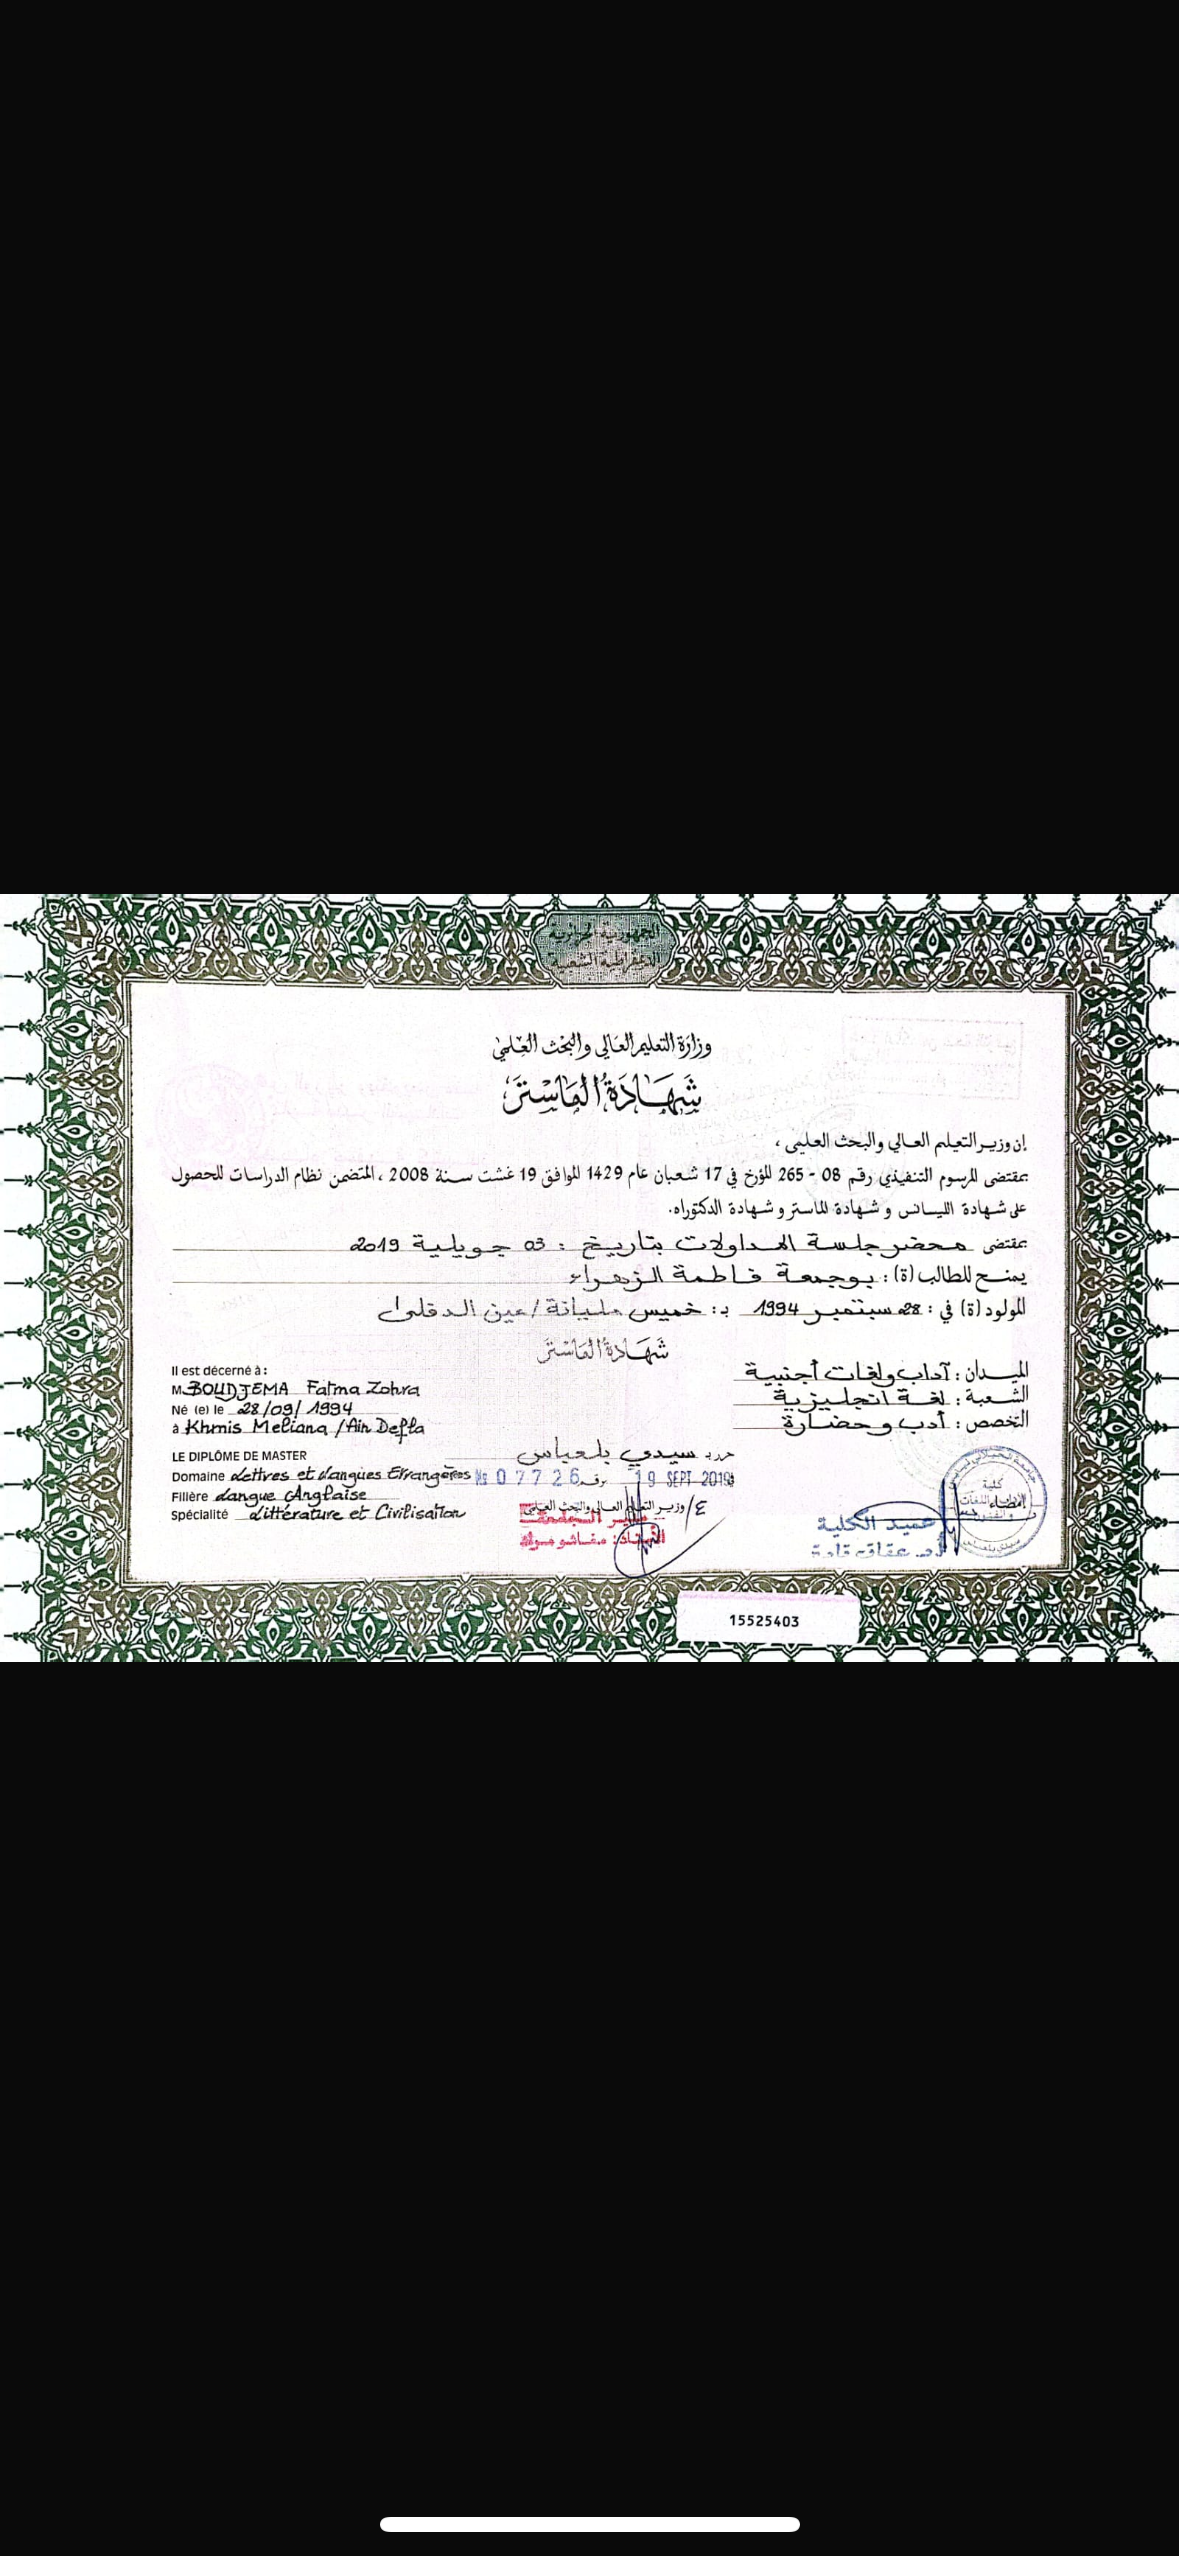 وزارة التعليم العالي والبحث العلمي
شهادة الماستر
إن وزير التعليم العالي والبحث العلمي ،
بمقتضى المرسوم التنفيذي رقم 08 - 265 المؤرخ في 17 شعبان عام 1429 الموافق 19 غشت سنة 2008 ، المتضمن نظام الدراسات للحصول
على شهادة الليسانس و شهادة الماستر و شهادة الدكتوراه.
بمقتضى محضر جلسة المداولات بتاريخ : 03 جويلية 2019
يمنح للطالب (ة) : بوجمعة فاطمة الزهراء
المولود (ة) في : 28 سبتمبر 1994 بـ : خميس مليانة / عين الدفلى
شهادة الماستر
الميدان : آداب ولغات أجنبية
الشعبة : لغة انجليزية
التخصص : أدب و حضارة
Il est décerné à :
M BOUDJEMA Fatma Zohra
Né (e) le 28/09/1994
à Khmis Meliana / Ain Defla
LE DIPLÔME DE MASTER
Domaine Lettres et Langues Etrangères
Filière Langue Anglaise
Spécialité Littérature et Civilisation
حرر بـ سيدي بلعباس
19 SEPT 2019 رقم № 07726
ع/ وزير التعليم العالي والبحث العلمي
مدير الجامعة
عميد الكلية
كلية
15525403